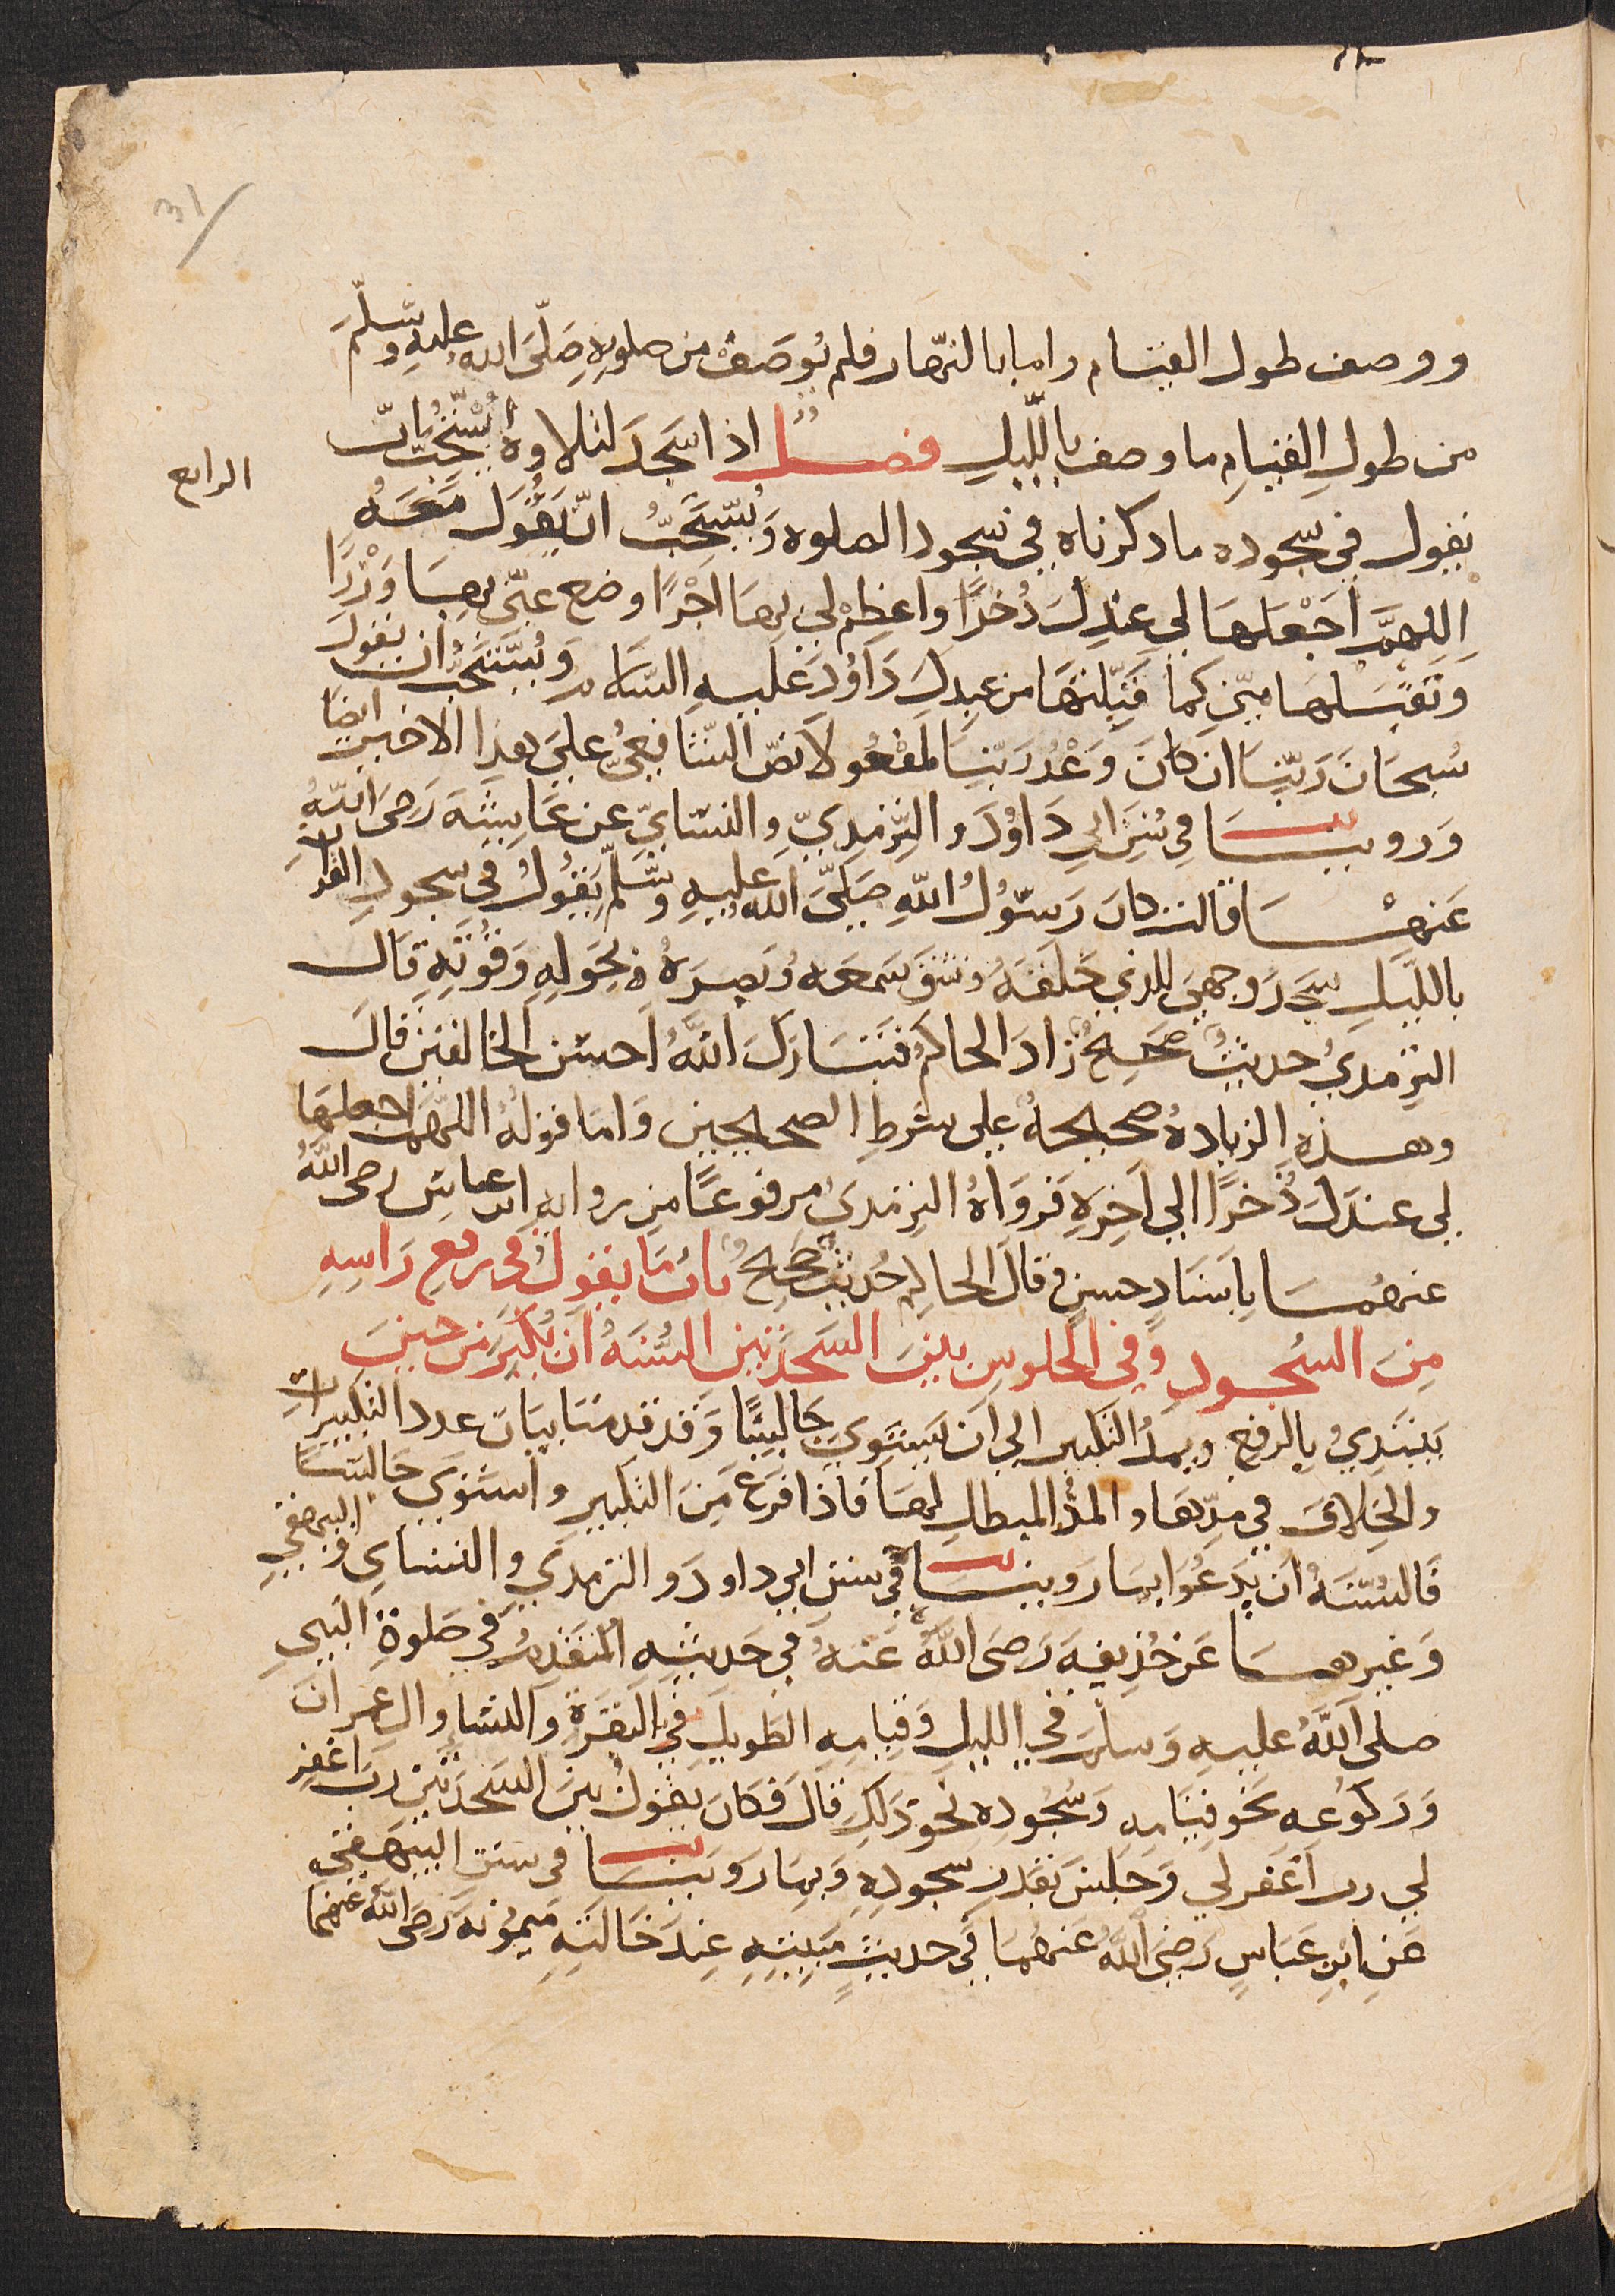 31
ووصف طول القيام واما بالنهار فلم يُوصَفْ من صلوتِهِ صَلّى الله عليه وسلّمَ
من طولِ القيامِ ما وصف بالليلِ فصلٌ اذا سَجدَ لتلاوةٍ اُسْتُحِبَّ ان
الرابع
يقول في سجوده ما ذكرناه في سجود الصلوة وَيُسْتَحَبُّ انْ يقُولَ مَعَهُ
اللهمَّ اجْعَلها لي عندِكَ ذُخرًا واعظِمْ لي بهَا اجْرًا وضع عنّي بهَا وَزْرًا
وتقبّلها منّي كما قبِّلتها من عبدِكَ دَاوُدَ عليهِ السّلام وَيُسْتَحَبُّ ان يقولَ
سُبحَانَ رَبّنَا ان كانَ وَعْدُ رَبّنَا لمفعُولا نصّ الشّافعيُّ علي هذا الاخير ايضًا
وَروينَا في سُننِ ابي دَاوُدَ والتِّرمذيّ والنسَائيّ عن عَايشَةَ رَضيَ اللّهُ
عَنهْا قالت كانَ رَسُولُ اللّهِ صَلّى الله عليهِ وسَلّمَ يَقُولُ في سجودِ القرانِ
بالليّلِ سَجَدَ وجهيَ للذي خَلقهُ وشقّ سَمعَه وَبصرَهُ بحَولِهِ وَقُوّتِهِ قال
التِرمذيُ حديثٌ صَحِيحٌ زادَ الحاكمُ فتبَارَكَ اللّهُ احسَن الخالقينَ قالَ
وهذهِ الزيادهُ صحيحهٌ على شرطِ الصحيحين وَامّا قولهُ اللهمّ اجعلهَا
لي عندَكَ ذُخرًا الي آخِرِهِ فَروَاهُ التِرمذيُ مرفوعًا من روايةِ ابن عباسٍ رضي اللّهُ
عنهُمَا بِاسَنادٍ حسنٍ قالَ الحاكم حُديثٌ صَحِيحٌ بابُ مَا يقولُ في رفعِ رَاسِهِ
مِنَ السُجودِ وَفي الجلوسِ بينَ السَّجدتينِ السُّنَّهُ اَنْ يُكَبِّرَ من حينَ
يَبْتَدِيُ بِالرفعِ ويمدُ التكبير الي اَن يَسْتويَ جَالِسًا وَقد قدمنَا بيَانَ عدد التكبيراتِ
والخِلافَ في مدّها والمَدُّ المبطلِ لهَا فاذا فرَغ مِنَ التكبيرِ واستَوَي جَالسًا
فَالسُنّهُ ان يَدعُوَا بمَا رَوينَا في سننِ ابي داودَ والترمذي والنسَاي والبيهقي
وَغيرهَا عَن حُذيفهَ رَضَى اللّهُ عَنهُ في حَديثِهِ المُتقَدّمِ في صَلوةِ النّبي
صلى اللّهُ عليهِ وَسلمَ في الليلِ وَقيامِهِ الطَويلِ في البَقَرةِ وَالنسَا وال عمرانَ
وَرَكوُعِه نَحوَ قيَامِهِ وَسُجُودِهِ نَحوَ ذَلِكَ قالَ فَكانَ يقولُ بَينَ السّجدَتينِ ربّ اغفِر
لي رب اغفَرلي وَجَلسَ بقدرِ سجودِهِ وَبمَا رَوينَا في سننِ البيهَقي
عَنِ ابنِ عَباسٍ رَضيَ اللّهُ عَنهُمَا في حديثِ مَبيتِهِ عِندَ خَالتِهِ مَيمُونَهَ رَضَى اللّهُ عنها